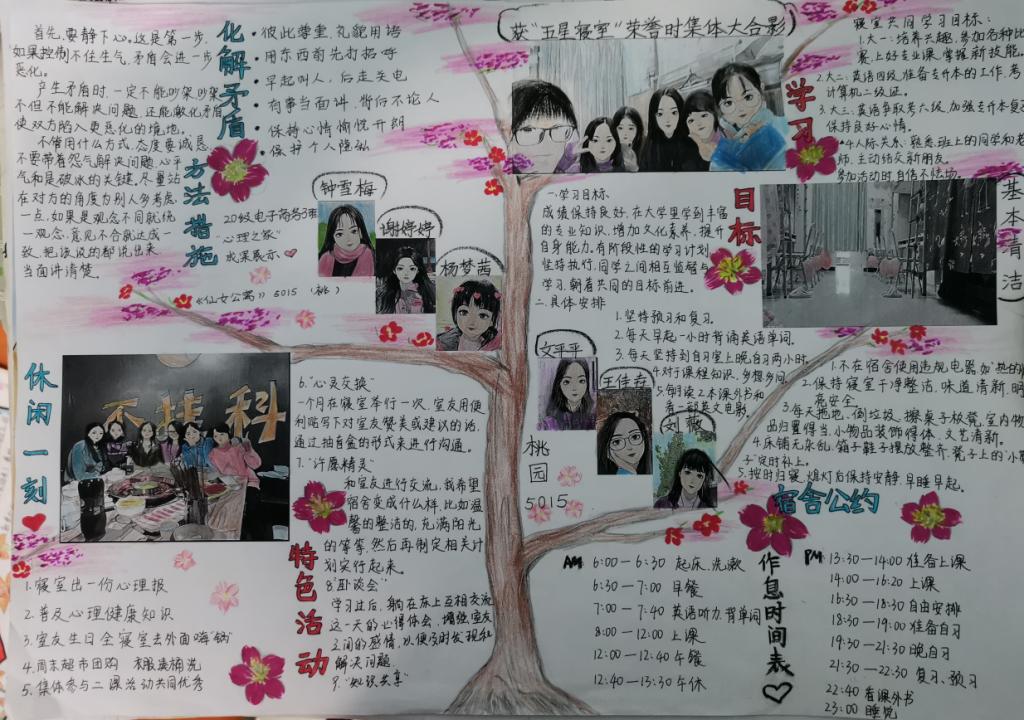 首先,要静下心。这是第一步,
如果控制不住生气,矛盾会进一步
恶化。
产生矛盾时,一定不能吵架,吵架
不但不能解决问题,还能激化矛盾
使双方陷入更恶化的境地。
不管用什么方式,态度要诚恳,
不要带着怨气解决问题,心平
气和是破冰的关键。尽量站
在对方的角度为别人多考虑
一点,如果是观念不同就统
一观念,意见不合就达成一
致,把该说的都说出来
当面讲清楚。
化解矛盾
方法措施
·彼此尊重,礼貌用语
·用东西前先打招呼
·早起叫人,后走关电
·有事当面讲,背后不论人
·保持心情愉悦开朗
·保护个人隐私
20级电子商务3班
"心理之家"
成果展示
《仙女公寓》5015 (桃)
钟雪梅
谢婷婷
杨梦茜
获"五星寝室"荣誉时集体大合影
学习
目标
寝室共同学习目标:
1.大一:培养兴趣,参加各种比
赛,上好专业课,掌握新技能。
2.大二:英语四级,准备专升本的工作,考
计算机二级证。
3.大三:英语争取考六级,加强专升本复
保持良好心情。
4.人际关系:熟悉班上的同学和老
师,主动结交新朋友。
参加活动时自信不怯场。
一.学习目标
成绩保持良好,在大学里学到丰富
的专业知识,增加文化素养,提升
自身能力,有阶段性的学习计划
坚持执行,同学之间相互监督与
学习,朝着共同的目标前进。
二.具体安排
1.坚持预习和复习。
2.每天早起一小时背诵英语单词。
3.每天坚持到自习室上晚自习两小时
4.对于课程知识,多想多问。
5.每月读2本课外书和
看一部英文电影。
基本清洁
文平平
王佳垚
刘薇
桃园
5015
1.不在宿舍使用违规电器如"热的
2.保持寝室干净整洁,味道清新,明
亮安全。
3.每天拖地、倒垃圾、擦桌子板凳,室内物
品归置得当,小物品装饰得体,文艺清新。
4.床铺无杂乱,箱子鞋子摆放整齐,凳子上的"小
子"定时补上。
5.按时归寝,熄灯后保持安静,早睡早起。
宿舍公约
休闲一刻
不挂科
1.寝室出一份心理报
2.普及心理健康知识
3.室友生日全寝室去外面嗨饭
4.周末超市团购
5.集体参与二课活动共同优秀
特色活动
6."心灵交换"
一个月在寝室举行一次,室友用便
利贴写下对室友赞美或建议的话,
通过抽盲盒的形式来进行沟通。
7."许愿精灵"
和室友进行交流,我希望
宿舍变成什么样,比如温
馨的整洁的,充满阳光
的等等,然后再制定相关计
划实行起来。
8."卧谈会"
学习过后,躺在床上互相交流
这一天的心得体会,增强室友
之间的感情,以便及时发现和
解决问题。
9."知识共享"
AM
6:00—6:30 起床、洗漱
6:30—7:00 早餐
7:00—7:40 英语听力、背单词
8:00—12:00 上课
12:00—12:40 午餐
12:40—13:30 午休
作息时间表
PM
13:30—14:00 准备上课
14:00—16:20 上课
16:30—18:30 自由安排
18:30—19:00 准备自习
19:30—21:30 晚自习
21:30—22:30 复习、预习
22:40 看课外书
23:00 睡觉